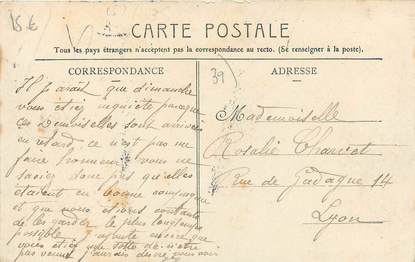 15 €
CARTE POSTALE
Tous les pays étrangers n'acceptent pas la correspondance au recto. (Se renseigner à la poste).
CORRESPONDANCE
Il paraît que dimanche
vous étiez inquiète parceque
ces Demoiselles sont arrivées
en retard ce n'est pas me
faire honneur vous ne
saviez donc pas qu'elles
étaient en bonne compagnie
et que nous étions contents
de les garder le plus longtemps
possible j'ajoute encore que
vous étiez une sotte de n'être
pas venue
39
ADRESSE
Mademoiselle
Rosalie Charvet
Rue de Gadagne 14
Lyon